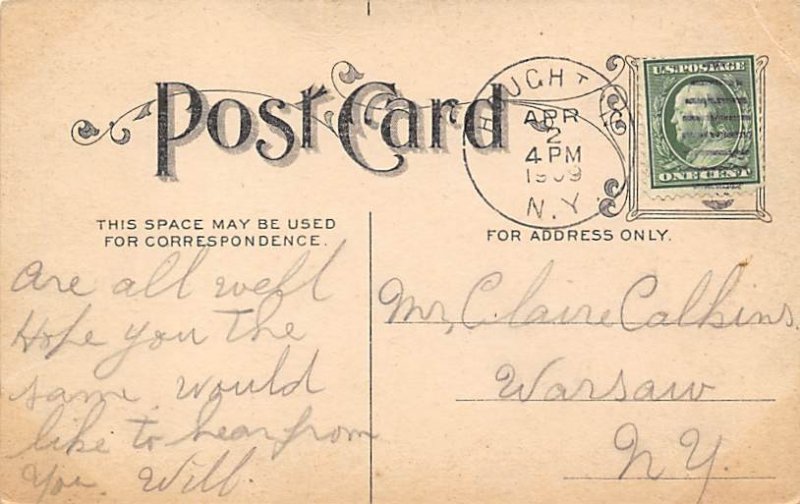 Post Card
HOUGHT
APR
2
4 PM
1909
N.Y.
U.S. POSTAGE
ONE CENT
THIS SPACE MAY BE USED
FOR CORRESPONDENCE.
FOR ADDRESS ONLY.
are all well
Hope you the
sam. would
like to hear from
You. Will.
Mr, Claire Calkins,
Warsaw
NY.